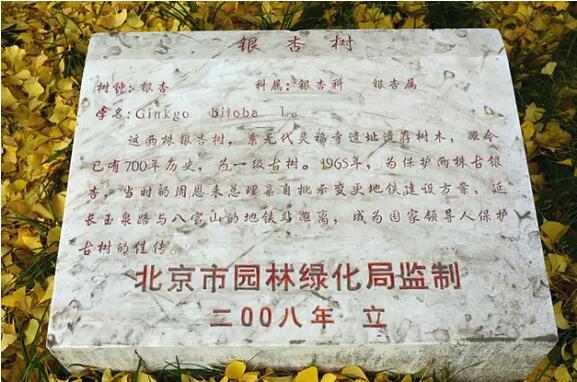 银杏树
树种:银杏 科属:银杏科 银杏属
学名:Ginkgo biloba L.
这两株银杏树，系元代灵福寺遗址遗存树木，距今
已有700年历史，为一级古树。1965年，为保护两株古银
杏，当时的周恩来总理亲自批示变更地铁建设方案，延
长玉泉路与八宝山的地铁站距离，成为国家领导人保护
古树的佳传。
北京市园林绿化局监制
二00八年 立